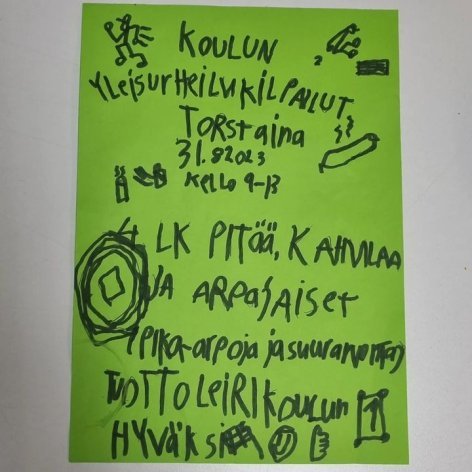 KOULUN
YLEISURHEILUKILPAILUT
TORSTAINA
31.8 2023
KELLO 9-13
4 LK PITÄÄ, KAHVILAA
JA ARPAJAISET
(PIKA-arpoja ja suurarvontaa)
TUOTTO LEIRIKOULUN
HYVÄKSI